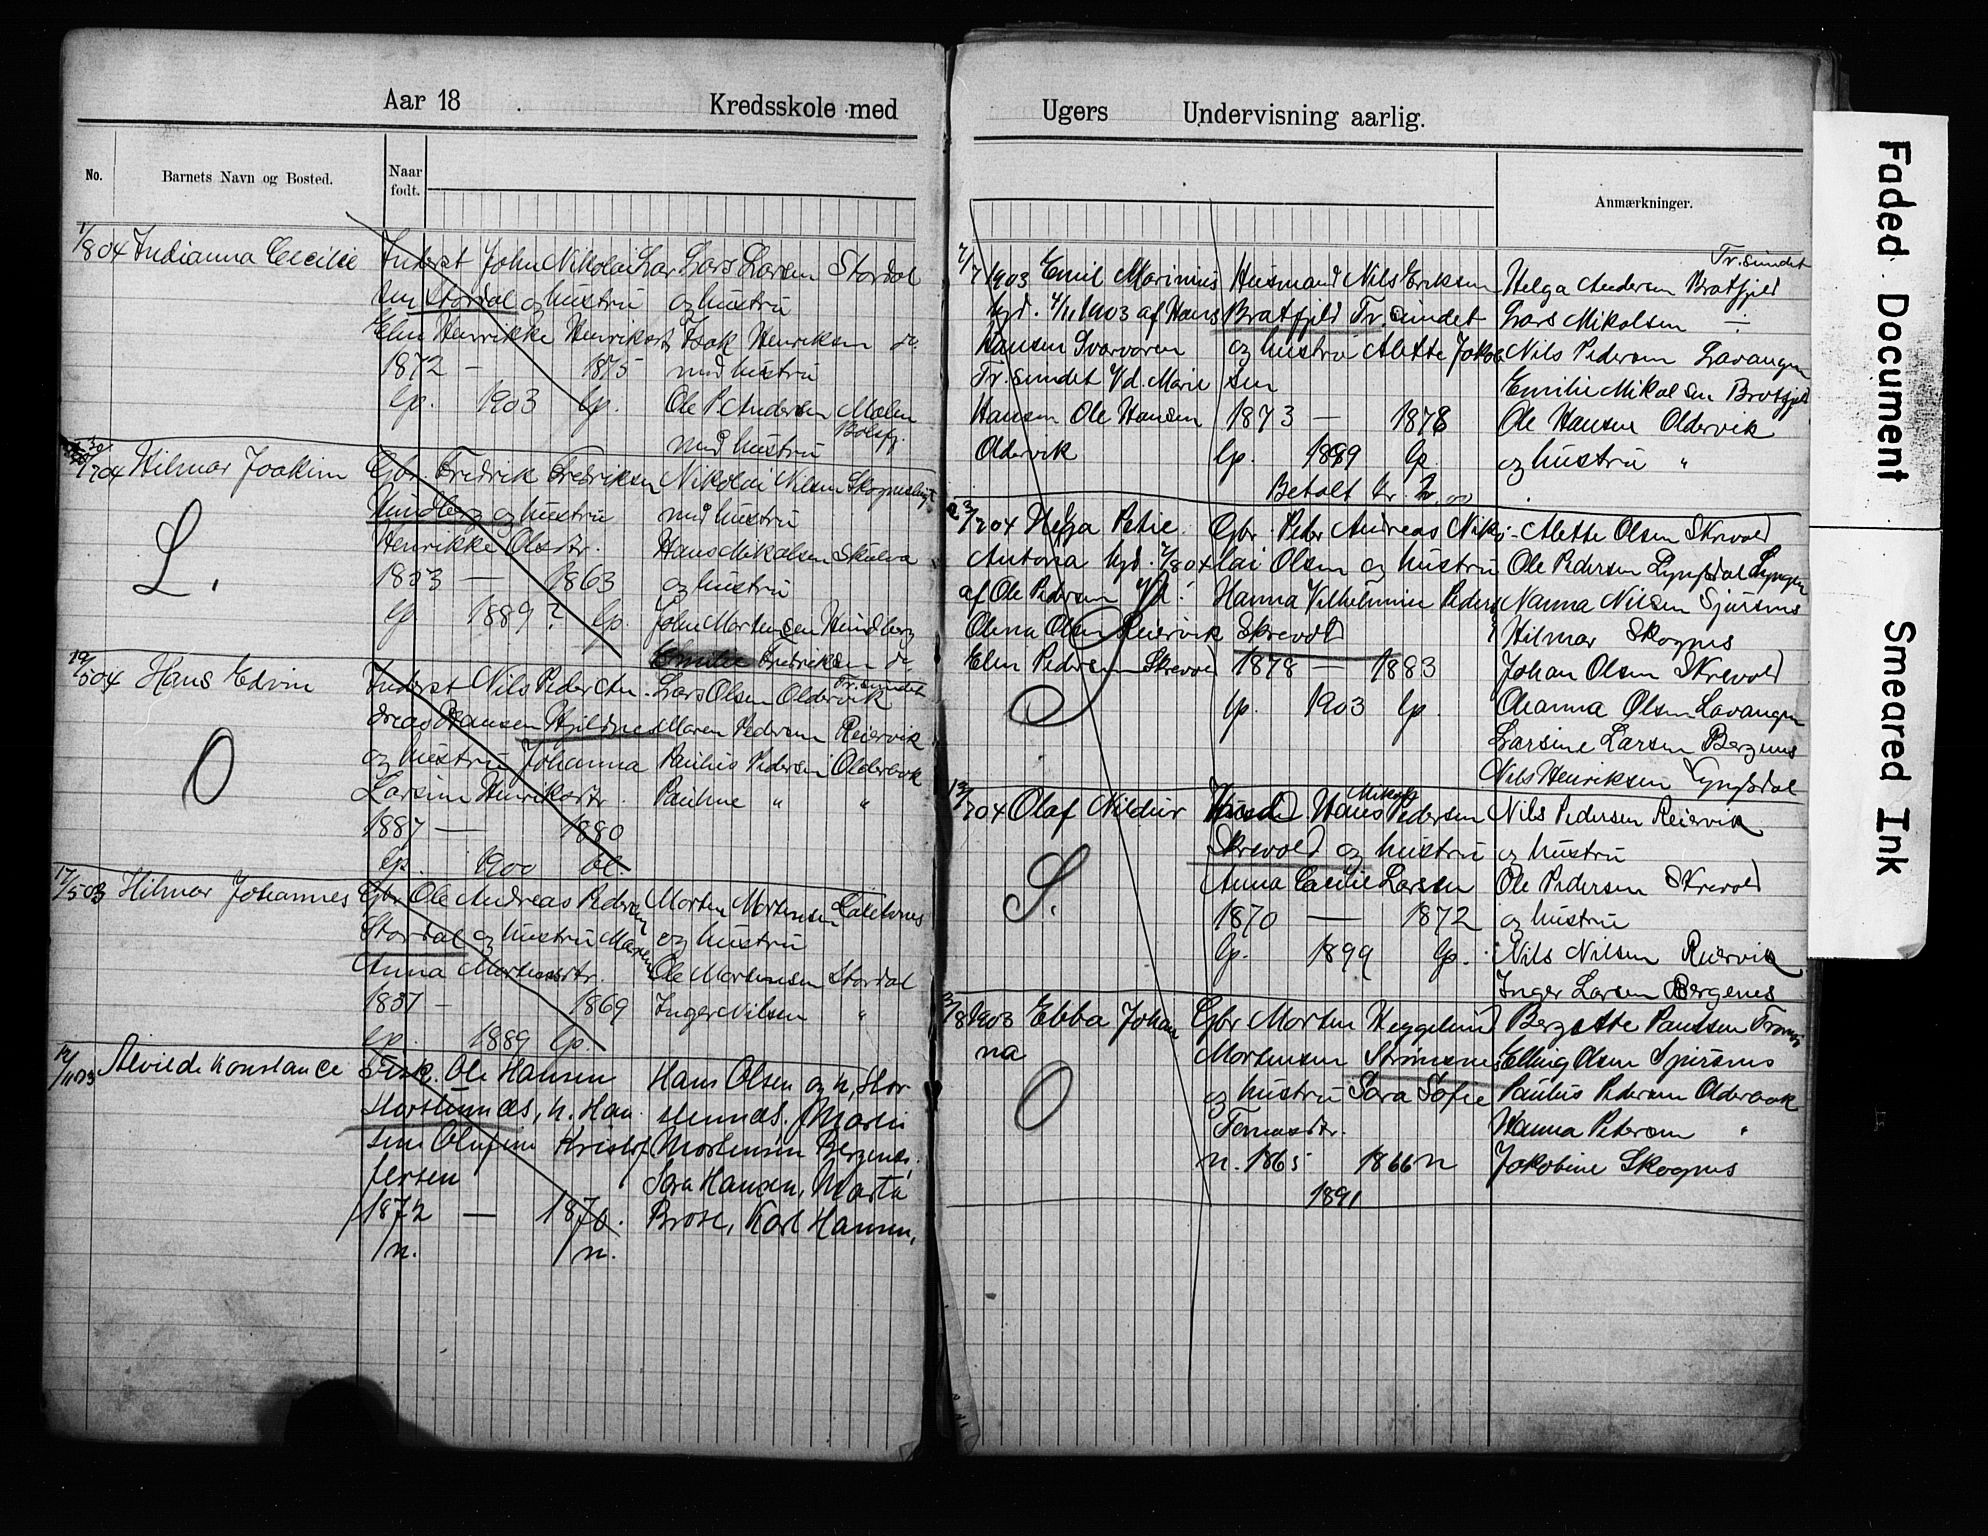 Aar 18
Kredsskole med
No.
Barnets Navn og Bosted.
Naar
født.
1/8 04 Indianna Cecilie
Inderst John Nikolai Lar
sen Stordal og hustru
Elen Henrikke Henriksdtr
1872 — 1875
Gp. 1903 Gp.
Lars Larsen Stordal
og hustru
Isak Henriksen do
med hustru
Ole P. Andersen Malen
Balsfj.
med hustru
/7 04 Hilmar Joakim
L.
Gbr Fredrik Fredriksen
Hundberg og hustru
Henrikke Olsdtr.
1853 — 1863
Gp 1889? Gp.
Nikolai Nilsen
med hustru
Hans Mikalsen
og hustru
John Mortensen Hundberg
Emilie Fredriksen do
19/5 04 Hans Edvin
O
Inderst Nils Peder An-
dreas Hansen
og hustru Johanna
Larsine Henriksdtr.
1887 — 1880
Gp. 1900
Tr.sundet
Lars Olsen Oldervik
Maren Pedersen Reiervik
Paulus Pedersen Olderbak
Pauline " "
17/5 03 Hilmar Johannes
Gbr Ole Andreas Pedersen
Stordal og hustru Maren
Anna Mortensdtr.
1857 — 1869
Gp. 1889 Gp.
Morten Mortensen
og hustru
Ole Mortensen Stordal
Inger Nilsen "
12/11 03 Alvilde Konstance
Fisk. Ole Hansen
h. Han
sine Olufine Kristof
fersen
1872 — 1870.
/n. /n.
Hans Olsen og h, Stor
stennæs. Martin
Mortensen Bergenes,
Sara Hansen, Marta
Brose, Karl Hansen,
Ugers
Undervisning aarlig.
Anmærkninger.
7/7 1903 Emil Marinius
hjd. 4/11 1903 af Hans
Hansen Svarvaren
Tr.sundet v/d. Marie
Hansen Ole Hansen
Oldervik
Husmand Nils Eriksen
Bratfjeld Tr.sundet
og hustru Alette Jakob
sen
1873 — 1878
Gp. 1899 Gp
Betalt Kr. 2,00
Tr.sundet
Helga Andersen Bratfjeld
Lars Mikalsen —
Nils Pedersen Lavangen
Emilie Mikalsen Bratfjeld
Ole Hansen Oldervik
og hustru "
/7 04 Helga Petie
Antona hjd. 7/8 04
af Ole Pedersen
Olena Olsen Reiervik
Elen Pedersen Skrevold
S
Gbr. Peder Andreas Niko-
lai Olsen og hustru
Hanna Vilhelmine Peders
Skrevold
1878 — 1883
Gp. 1903 Gp.
Alette Olsen Skrevold
Ole Pedersen Lyngsdal Lyngen
Nanna Nilsen
Hilmar Skognes
Johan Olsen Skrevold
Oleanna Olsen Lavangen
Larsine Larsen Bergenes
Nils Henriksen Lyngsdal
/7 04 Olaf
S.
Husm Hans Mikal Pedersen
Skrevold og hustru
Anna Cecilie Larsen
1870 — 1872
Gp. 1899 Gp.
Nils Pedersen Reiervik
og hustru
Ole Pedersen Skrevold
og hustru
Nils Nilsen Reiervik
Inger Larsen Bergenes
/8 1903 Ebba Johan
na
O
Gbr Morten Heggelund
Mortensen Strømsnes
og hustru Sara Sofie
Tomasdtr.
n. 1865 1866 n
1891
Bergette Paulsen Tromsø
Elling Olsen
Paulus Pedersen Olderbak
Hanna Petersen "
Jakobine Skognes
Faded Document
Smeared Ink